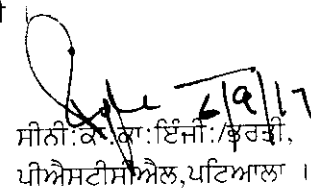 6/9/17
ਸੀਨੀ:ਕਾ:ਕਾ:ਇੰਜੀ:/ਭਰਤੀ,
ਪੀਐਸਟੀਸੀਐਲ,ਪਟਿਆਲਾ ।